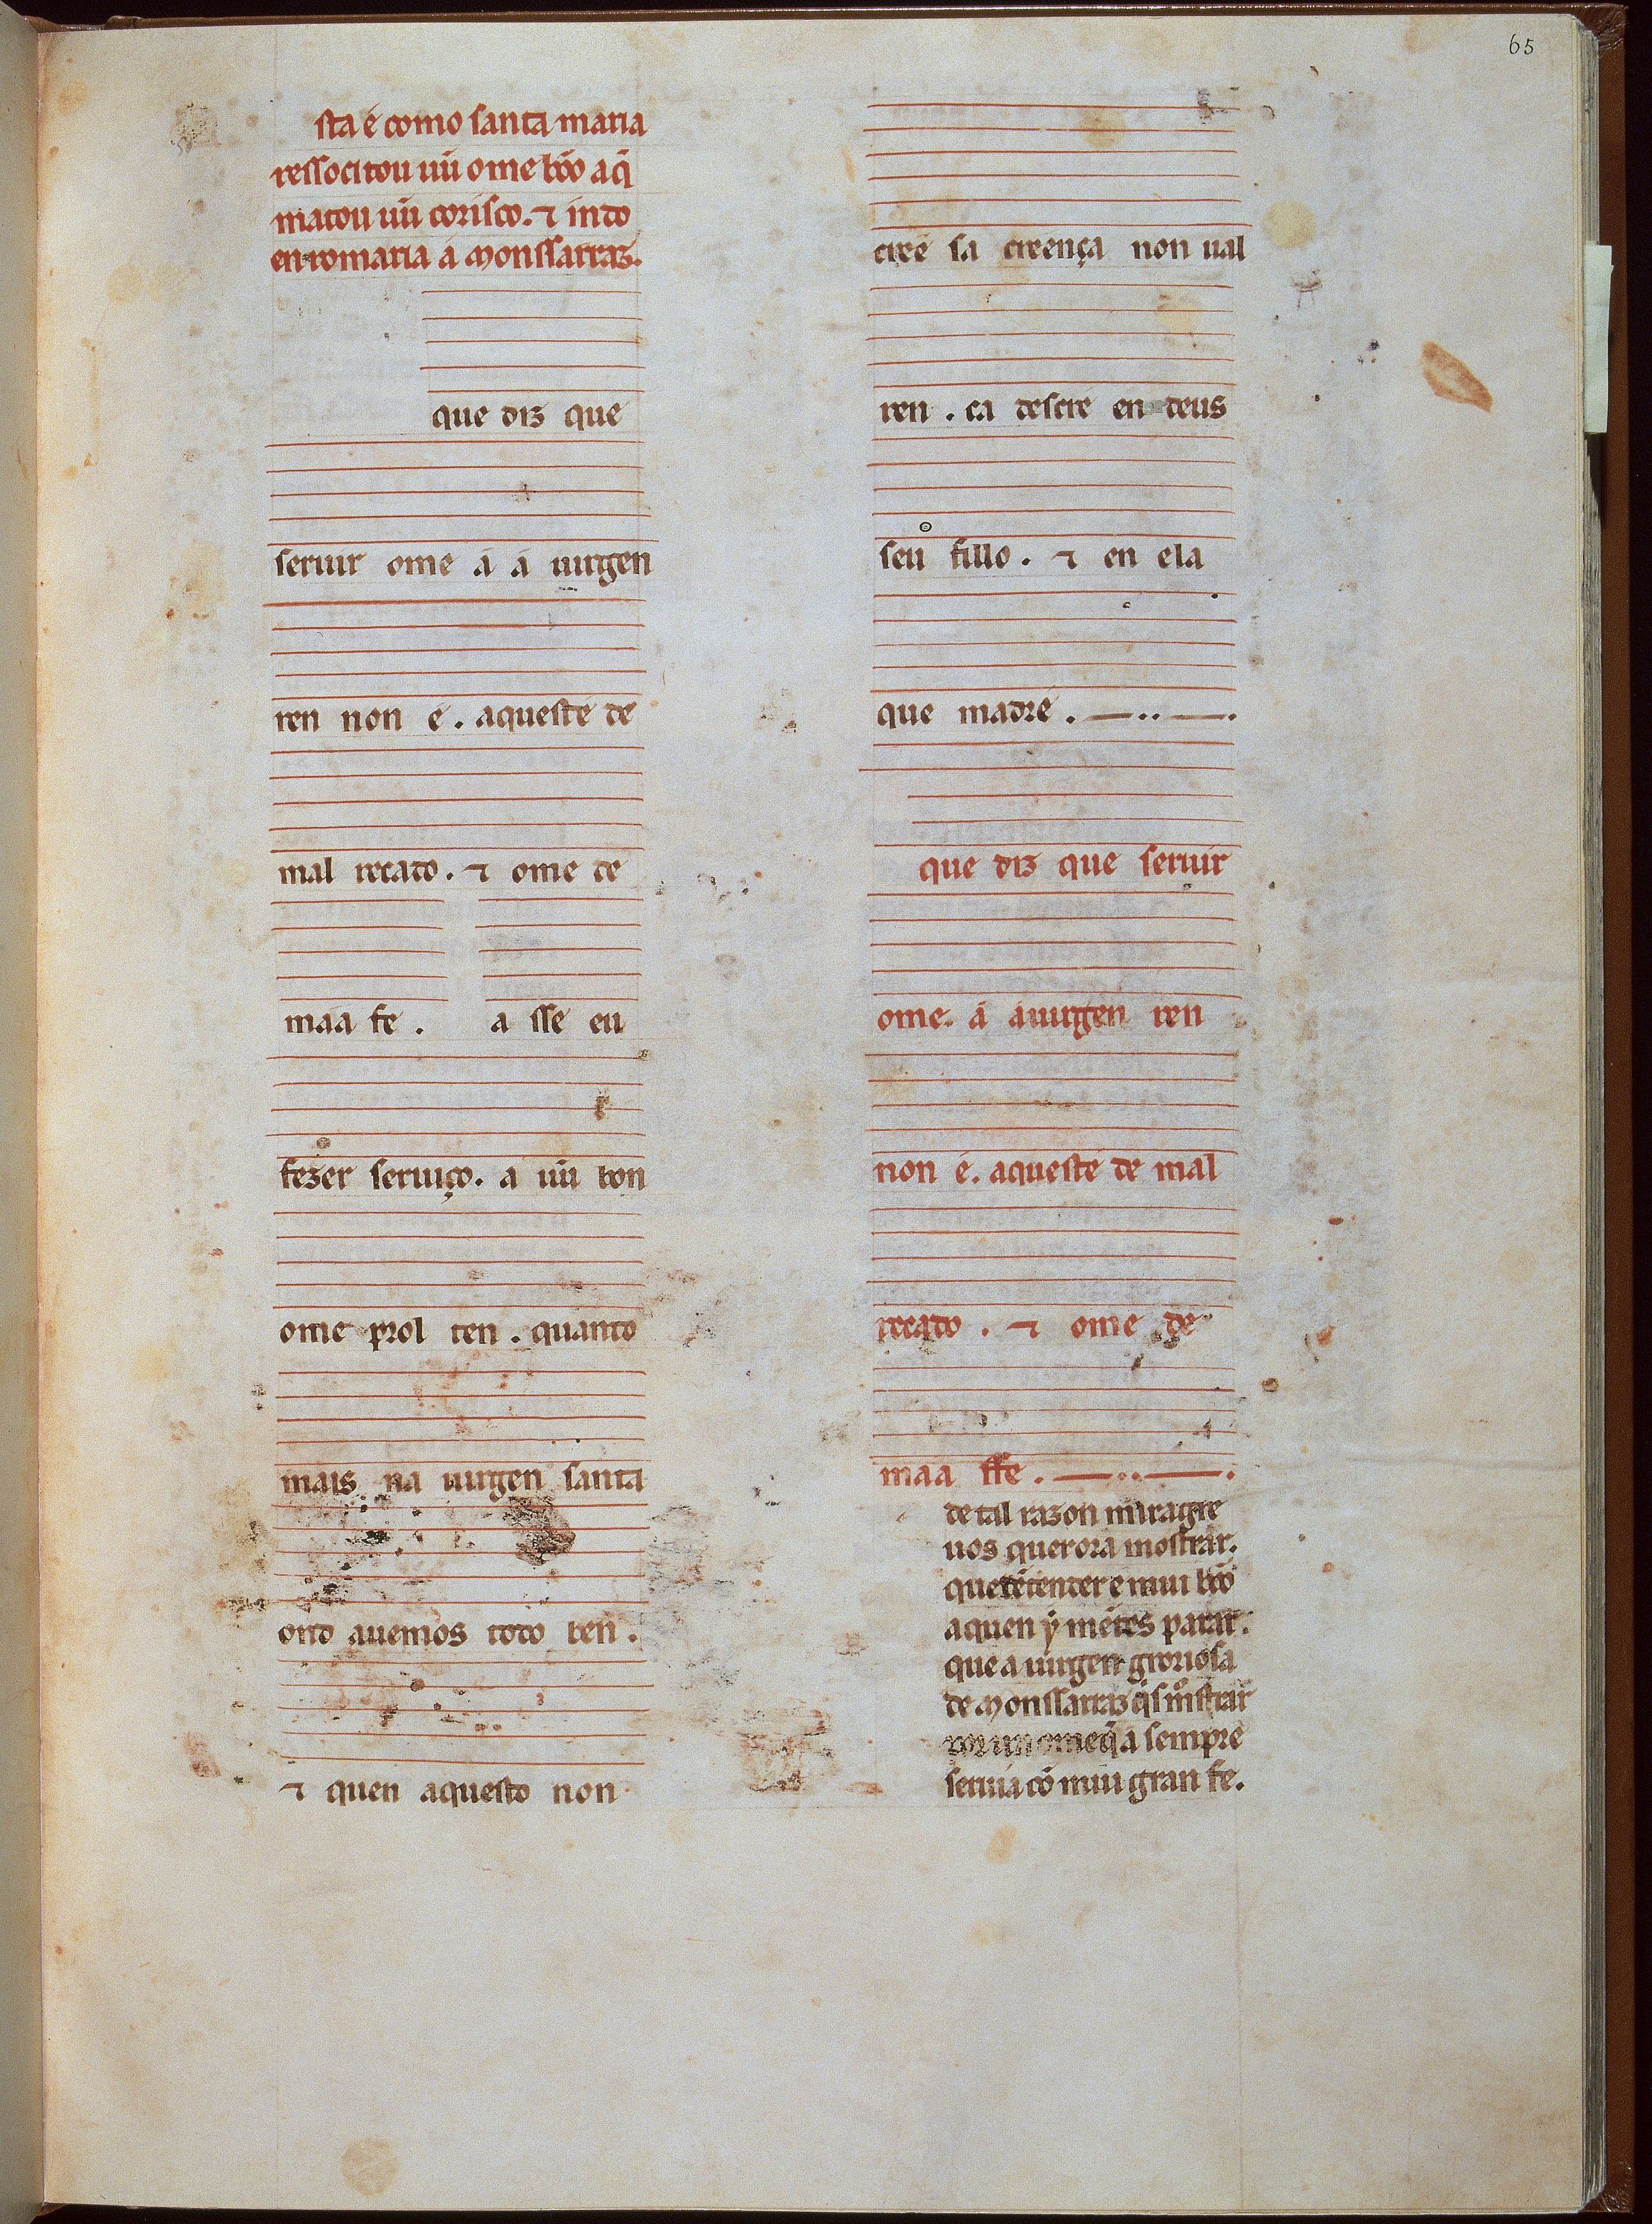 65
sta é como santa maria
ressocitou uũ ome bõo a q̃
matou uũ corisco. ⁊ indo
en romaria á monssarraz.
que diz que
seruir ome á á uirgen
ren non é. aqueste de
mal recado. ⁊ ome de
maa fe. a sse eu
fezer seruiço. a uũ bon
ome prol ten. quanto
mais na uirgen santa
ond auemos todo ben.
⁊ quen aquesto non
cree sa creença non ual
ren. ca descre en deus
seu fillo. ⁊ en ela
que madre.
que diz que seruir
ome. á áuirgen ren
non é. aqueste de mal
recado. ⁊ ome de
maa ffe.
de tal razon miragre
uos querora mostrar.
que tẽtender e mui bõo
aquen ý mẽtes parar.
que a uirgen groriosa
de monssarraz q̃s mostrar
por un ome q̃ a sempre
seruia cõ mui gran fe.